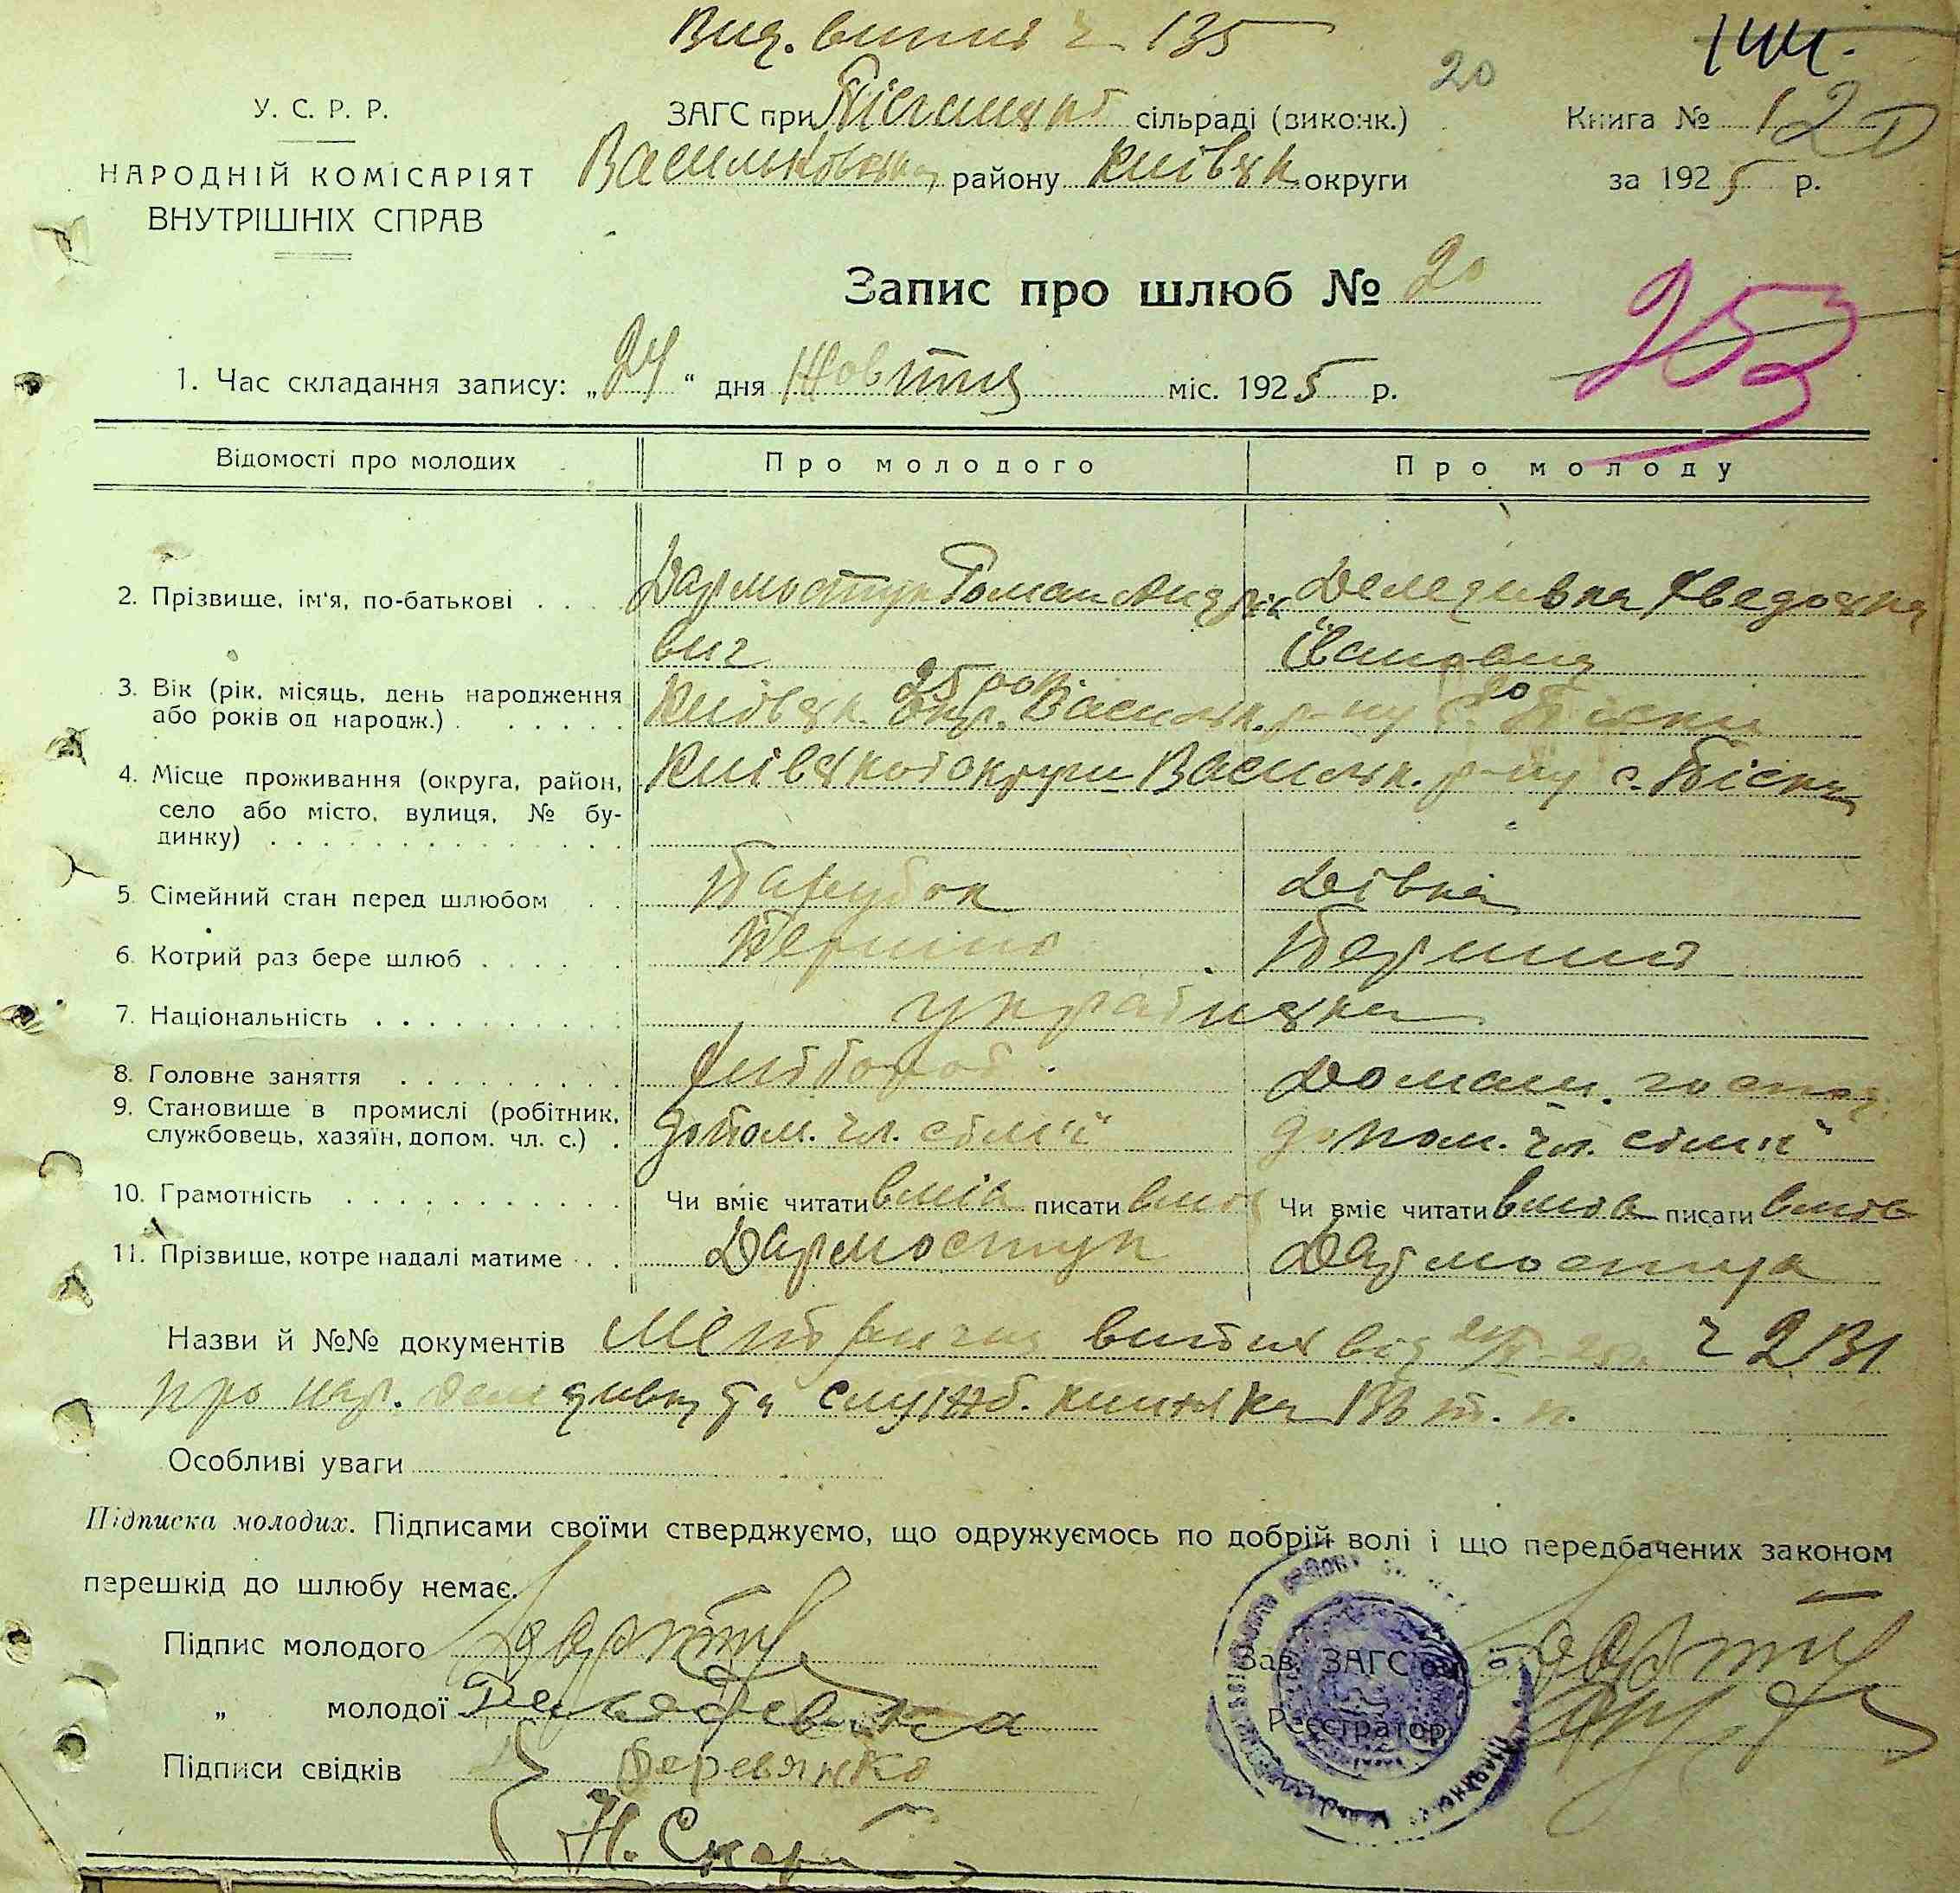 Вид. витяг ч 135
144.
20
У. С. Р. Р.
ЗАГС при Піській сільраді (виконк.)
Книга № 12
НАРОДНІЙ КОМІСАРІЯТ
Васильковськ району Київськ округи
за 1925 р.
ВНУТРІШНІХ СПРАВ
Запис про шлюб № 20
253
1. Час складання запису: „24“ дня Жовтня міс. 1925 р.
Відомості про молодих
Про молодого
Про молоду
2. Прізвище, ім'я, по-батькові . . . Дармостук Роман Андрія Деледивка Явдошка
вич Івановна
25 рок 20
3. Вік (рік, місяць, день народження Київськ. Окр. Васильк. р-ну с. Піски
або років од народж.) . . . . . .
4. Місце проживання (округа, район, Київської округи Васильк. р-ну с. Піски
село або місто, вулиця, № бу-
динку) . . . . . . . . . . . . . . .
5. Сімейний стан перед шлюбом . . Парубок Дівка
6. Котрий раз бере шлюб . . . . . Перший Перший
7. Національність . . . . . . . . . . українська
8. Головне заняття . . . . . . . . . хлібороб Домашн. господ.
9. Становище в промислі (робітник, допом. чл. сімї допом. чл. сімї
службовець, хазяїн, допом. чл. с.) .
10. Грамотність . . . . . . . . . . . Чи вміє читати вміє писати вміє Чи вміє читати вміє писати вміє
11. Прізвище, котре надалі матиме . . . Дармостук Дармостук
Назви й №№ документів Метрична витяг від ч 2131
про нар. Деледивки та служб. книжка
Особливі уваги
Підписка молодих. Підписами своїми стверджуємо, що одружуємось по добрій волі і що передбачених законом
перешкід до шлюбу немає.
Підпис молодого
Зав. ЗАГС'ом
„ молодої Деледевка
Реєстратор
Підписи свідків Деревянко
Н. Скар